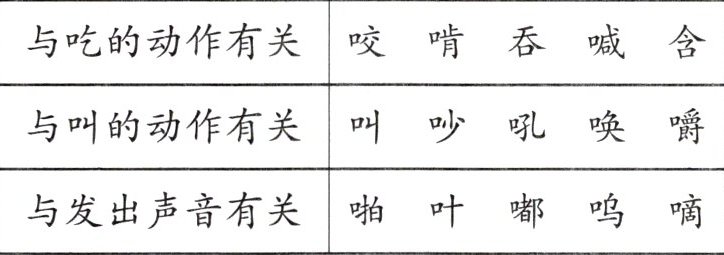 与吃的动作有关 咬 啃 吞 喊 含
与叫的动作有关 叫 吵 吼 唤 嚼
与发出声音有关 啪 叶 嘟 呜 嘀